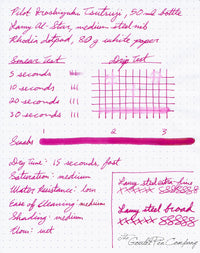 Pilot Iroshizuku Tsutsuji, 50 ml bottle
Lamy Al-Star, medium steel nib
Rhodia dotpad, 80g white paper
Smear Test
Drip Test
5 seconds
10 seconds
20 seconds
30 seconds
1 2 3
Swabs
Dry Time: 15 seconds, fast
Saturation: medium
Water Resistance: low
Ease of Cleaning: medium
Shading: medium
Flow: wet
Lamy steel extra-fine
xxxxxx 8888888
Lamy steel broad
xxxxxx 88888
The Goulet Pen Company